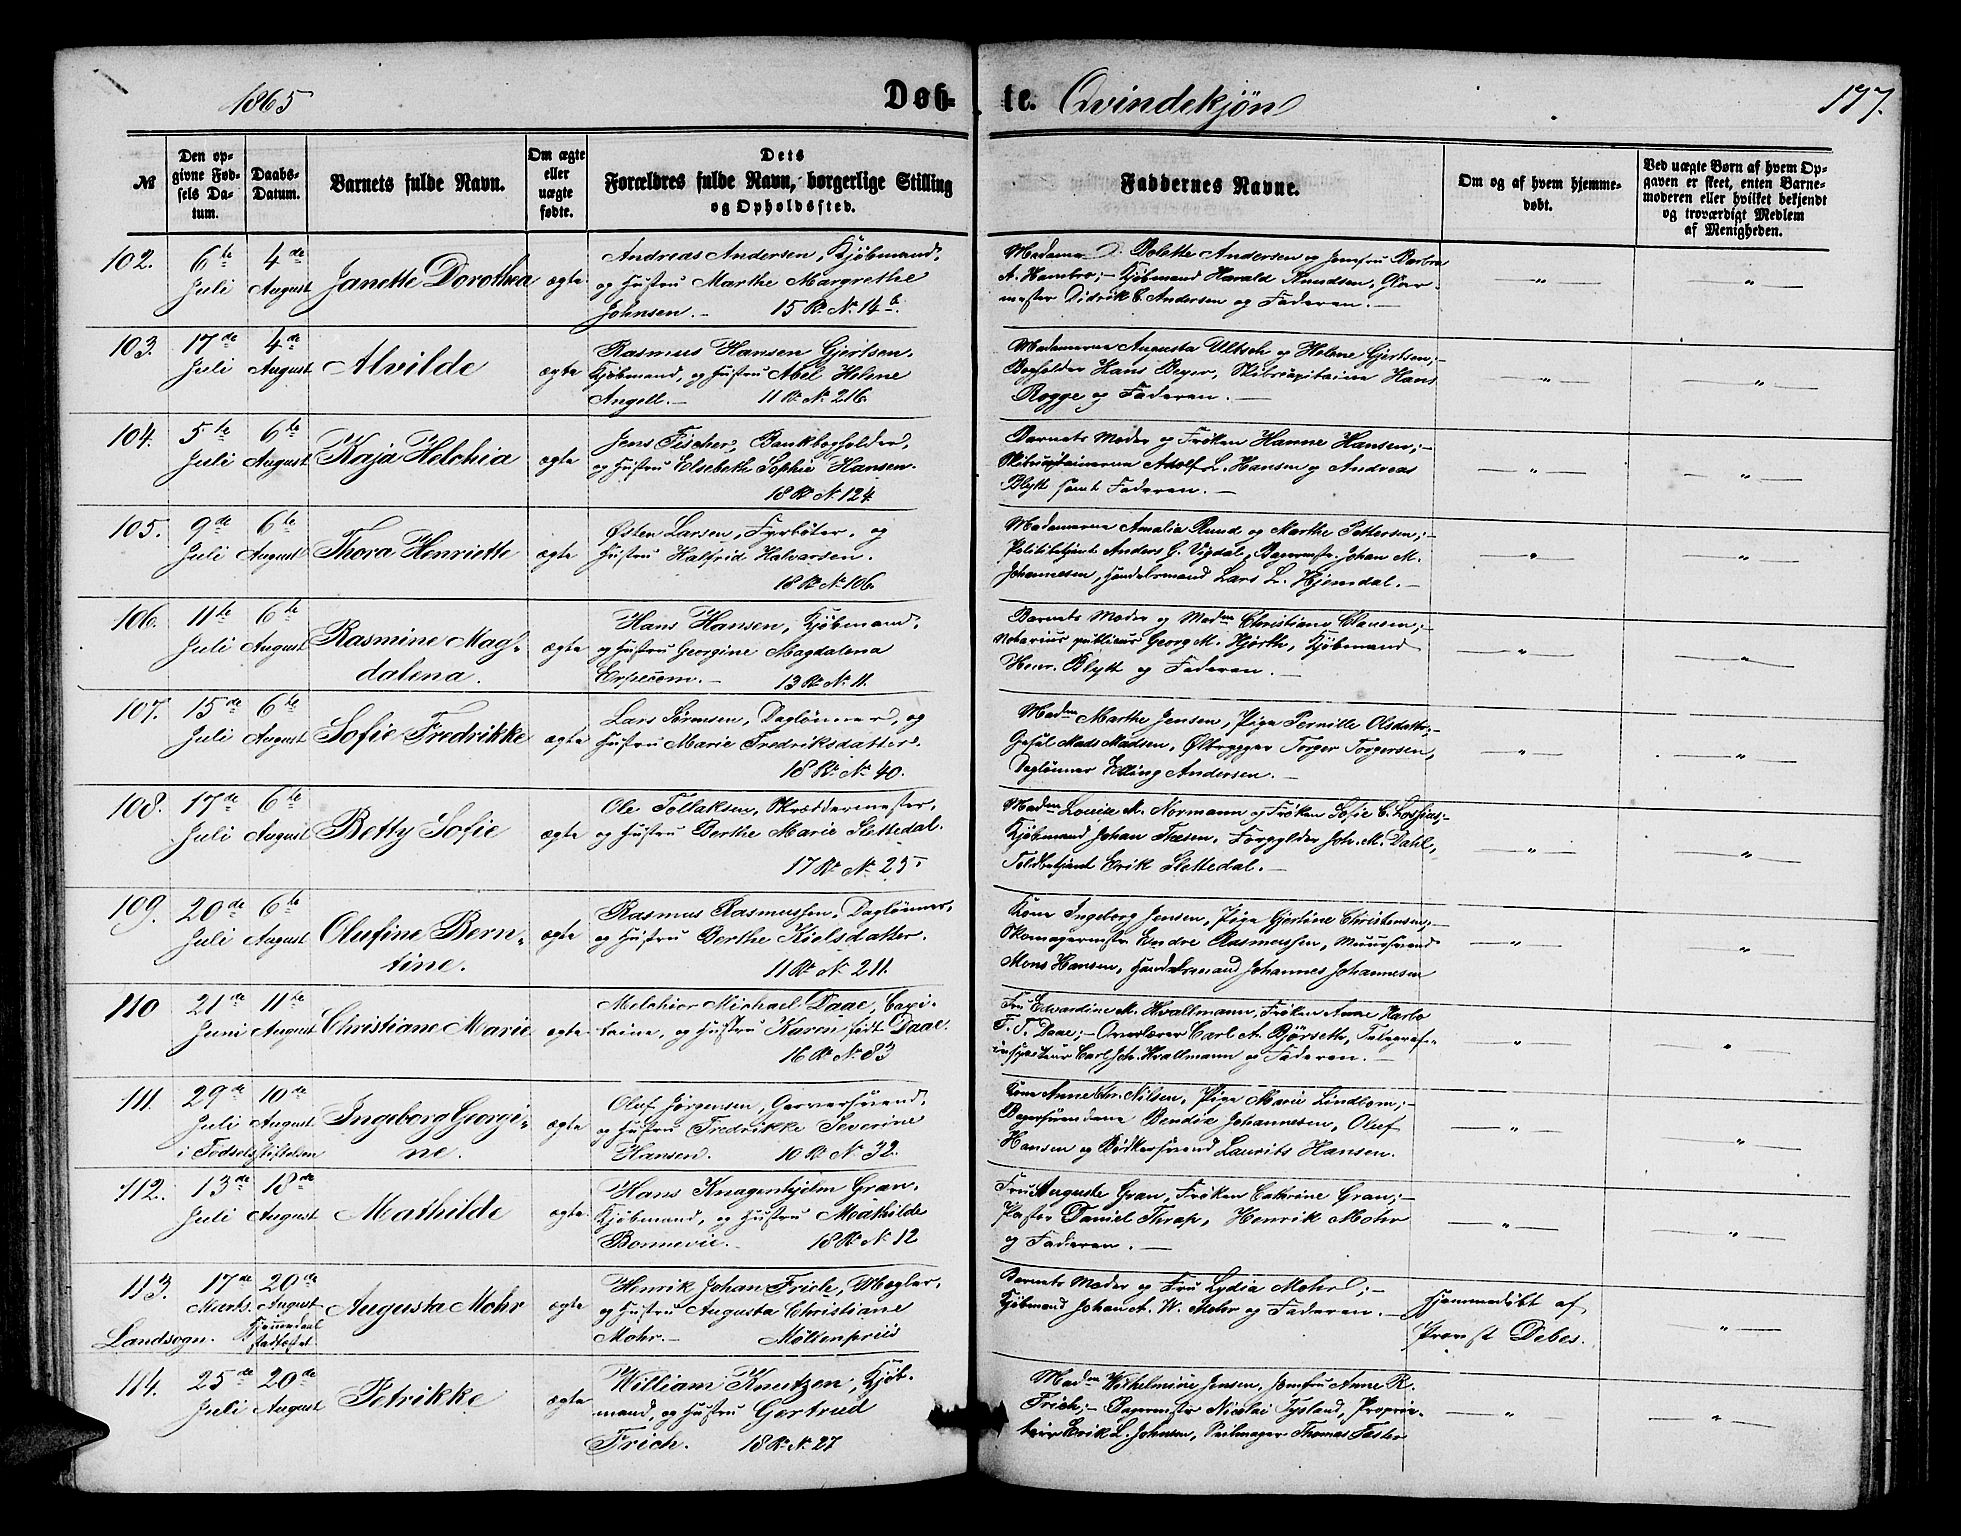 1865
Døb-
te.
Qvindekjøn
177.
№
Den op-
givne Fød-
sels Da-
tum.
Daabs-
Datum.
Barnets fulde Navn.
Om ægte
eller
uægte
fødte.
Dets
Forældres fulde Navn, borgerlige Stilling
og Opholdssted.
Faddernes Navne.
Om og af hvem hjemme-
døbt.
Ved uægte Børn af hvem Op-
gaven er skeet, enten Barne-
moderen eller hvilket bekjendt
og troværdigt Medlem
af Menigheden.
102.
6te
Juli
4de
August
Janette Dorothea
ægte
Andreas Andersen, Kjøbmand,
og Hustru Marthe Margrethe
Johnsen. - 15 R. N. 14 b.
Madame D. Bolette Andersen og Jomfru Barbra
A. Hambro; - Kjøbmand Harald Knudsen, Gar-
mester Didrik C. Andersen og Faderen. -
103.
17de
Juli
4de
August
Alvilde
ægte
Rasmus Hansen Gjertsen,
Kjøbmand, og Hustru Abel Helene
Angell. - 11 R. N. 216.
Madamerne Augusta Ultsch og Helene Gjertsen; -
Bogholder Hans Beyer, Skibscapitaine Hans
Rogge og Faderen. -
104.
5te
Juli
6te
August
Kaja Helchia
ægte
Jens Fischer, Bankbogholder,
og Hustru Elsebeth Sophie Hansen.
18 R. N. 124
Barnets Moder og Frøken Hanne Hansen; -
Skibscapitainerne Adolf L. Hansen og Andreas
Blytt samt Faderen. -
105.
9de
Juli
6te
August
Thora Henriette
ægte
Østen Larsen, Fyrbøter, og
Hustru Halfrid Halvarsen.
18 R. N. 106.
Madamerne Amalia Rund og Marthe Pettersen; -
Politibetjent Anders G. Vigdal, Bagermstr. Johan M.
Johannesen, Handelsmand Lars L. Hjemdal. -
106.
11te
Juli
6te
August
Rasmine Mag-
dalena.
ægte
Hans Hansen, Kjøbmand,
og Hustru Georgine Magdalena
13 R. N. 11.
Barnets Moder og Madm Christiane Clausen; -
Notarius publicus Georg M. Hjorth, Kjøbmand
Henr. Blytt og Faderen. -
107.
15de
Juli
6te
August
Sofie Fredrikke
ægte
Lars Sørensen, Daglønner, og
Hustru Marie Fredriksdatter.
18 R. N. 40.
Madm Marthe Jensen, Pige Pernille Olsdatter; -
Gesel Mads Madsen, Ølbrygger Torger Torgersen,
Daglønner Elling Andersen. -
108.
17de
Juli
6te
August
Betty Sofie
ægte
Ole Tollaksen, Skræddermester,
og Hustru Berthe Marie Slettedal.
17 R. N. 25.
Madm Lovise M. Normann og Frøken Sofie C. Lossius; -
Kjøbmand Johan Fasen, Forgylder Joh. M. Dahl,
Toldbetjent Erik Slettedal. -
109.
20de
Juli
6te
August
Olufine Bern-
tine.
ægte
Rasmus Rasmussen, Daglønner,
og Hustru Berthe Kielsdatter.
11 R. N. 211.
Kone Ingeborg Jensen, Pige Gjertine Christensen; -
Skomagermstr. Endre Rasmussen, Muursvend
Mons Hansen, Handelsmand Johannes Johannesen
110
21de
Juni
11te
August
Christiane Marie
ægte
Melchior Michael Daae, Capi-
taine, og Hustru Karen født Daae.
16 R. N. 83
Fru Edvardine M. Hvallmann, Frøken Anne Harbo
F. T. Daae; - Overlærer Carl A. Bjørseth, Telegraf-
inspecteur Carl Joh. Hvallmann og Faderen. -
111.
29de
Juli
10de
August
i Fødselsstiftelsen
Ingeborg Georgi-
ne.
ægte
Oluf Jørgensen, Garversvend,
og Hustru Fredrikke Severine
Hansen. 10 R. N. 32.
Kone Anne Chr. Nilsen, Pige Marie Lindbom; -
Bagersvendene Bendix Johannesen, Oluf
Hansen og Bødkersvend Laurits Hansen.
112.
13de
Juli
18de
August
Mathilde
ægte
Hans Knagenhjelm Gran,
Kjøbmand, og Hustru Mathilde
Bonnevie. - 18 R. N. 12
Fru Auguste Gran, Frøken Cathrine Gran; -
Pastor Daniel Thrap, Henrik Mohr
og Faderen. -
113.
17de
Marts.
Landsogn.
20de
August
Hjemmedaab
stadfæstet
Augusta Mohr
ægte
Henrik Johan Frich, Mægler,
og Hustru Augusta Christiane
Mohr. - Møllenpriis
Barnets Moder og Fru Lydia Mohr; -
Kjøbmand Johan A. W. Mohr og Faderen. -
Hjemmedøbt af
Provst Debes.
114.
25de
Juli
20de
August
Petrikke
ægte
William Knutzen, Kjøb-
mand, og Hustru Gertrud
Frich. 18 R. N. 27
Madm Wilhelmine Jensen, Jomfru Anne R.
Frich; - Bagermstr Nicolai Tysland, Proprie-
tair Erik L. Johnsen, Seilmager Thomas Faster